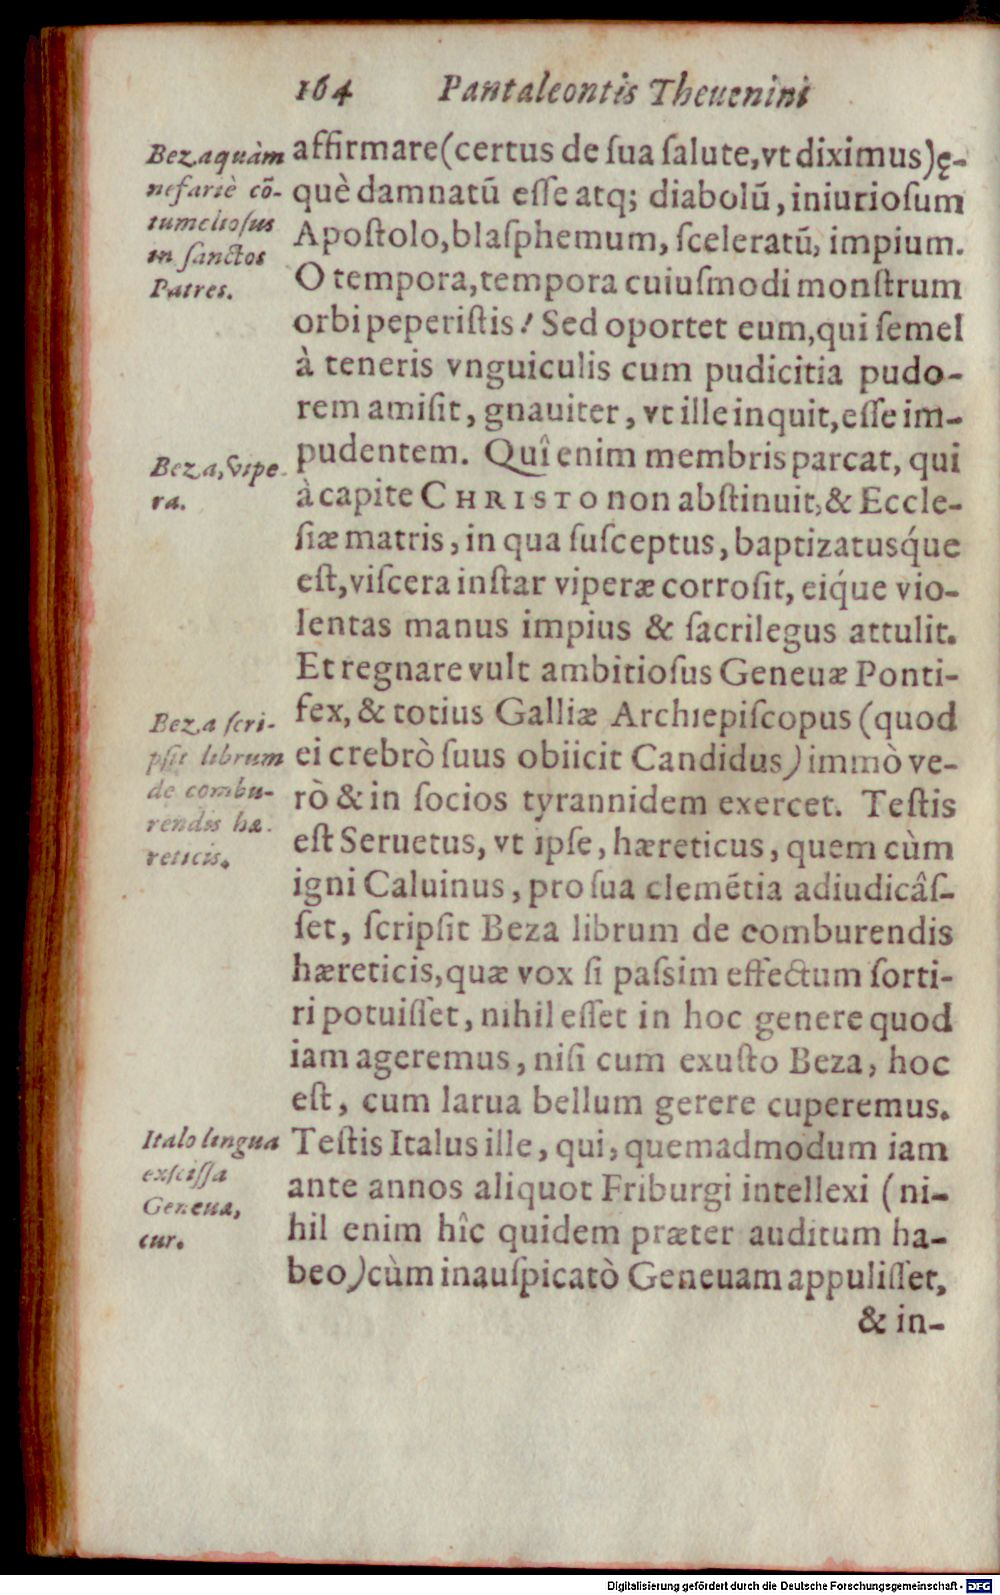 164 Pantaleontis Theuenini
Beza quàm
nefariè cō-
tumeliosus
in sanctos
Patres.
affirmare (certus de sua salute, vt diximus) ę-
què damnatū esse atq; diabolū, iniuriosum
Apostolo, blasphemum, sceleratū, impium.
O tempora, tempora cuiusmodi monstrum
orbi peperistis! Sed oportet eum, qui semel
à teneris vnguiculis cum pudicitia pudo-
rem amisit, gnauiter, vt ille inquit, esse im-
pudentem. Quî enim membris parcat, qui
Beza, vipe-
ra.
à capite CHRISTO non abstinuit, & Eccle-
siæ matris, in qua susceptus, baptizatusq́ue
est, viscera instar viperæ corrosit, eiq́ue vio-
lentas manus impius & sacrilegus attulit.
Et regnare vult ambitiosus Geneuæ Ponti-
fex, & totius Galliæ Archiepiscopus (quod
Beza scri-
psit librum
de combu-
rendis hæ-
reticis.
ei crebrò suus obiicit Candidus) immò ve-
rò & in socios tyrannidem exercet. Testis
est Seruetus, vt ipse, hæreticus, quem cùm
igni Caluinus, pro sua clemētia adiudicâs-
set, scripsit Beza librum de comburendis
hæreticis, quæ vox si passim effectum sorti-
ri potuisset, nihil esset in hoc genere quod
iam ageremus, nisi cum exusto Beza, hoc
est, cum larua bellum gerere cuperemus.
Italo lingua
exscissa
Geneua,
cur.
Testis Italus ille, qui, quemadmodum iam
ante annos aliquot Friburgi intellexi (ni-
hil enim hîc quidem præter auditum ha-
beo) cùm inauspicatò Geneuam appulisset,
& in-
Digitalisierung gefördert durch die Deutsche Forschungsgemeinschaft - DFG